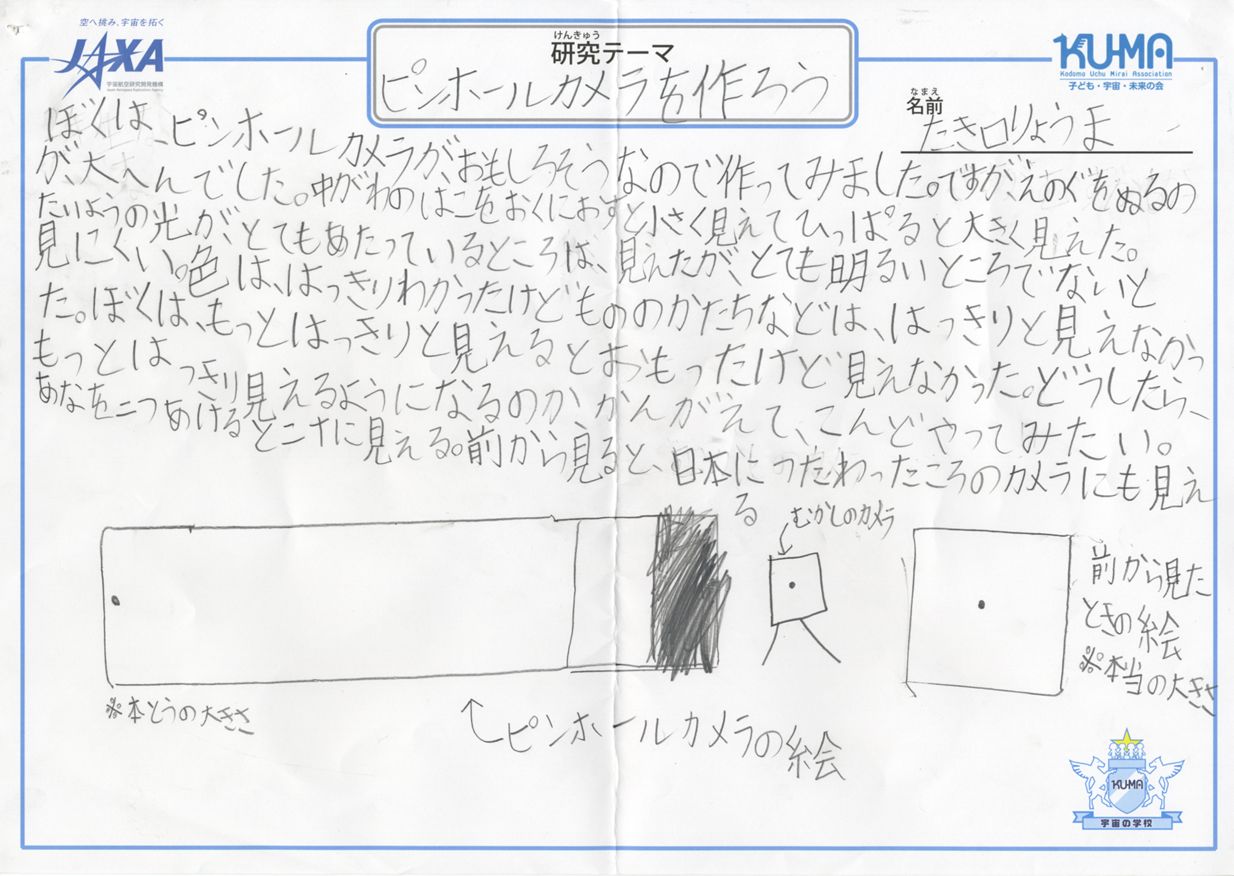 空へ挑み、宇宙を拓く
JAXA
宇宙航空研究開発機構
Japan Aerospace Exploration Agency
けんきゅう
研究テーマ
ピンホールカメラを作ろう
KU-MA
Kodomo Uchu Mirai Association
子ども・宇宙・未来の会
なまえ
名前
たき口りょうま
ぼくは、ピンホールカメラが、おもしろそうなので作ってみました。ですが、えのぐをぬるの
が、大へんでした。中がわのはこをおくにおすと小さく見えてひっぱると大きく見えた。
たいようの光が、とてもあたっているところは、見えたが、とても明るいところでないと
見にくい。色は、はっきりわかったけどもののかたちなどは、はっきりと見えなかっ
た。ぼくは、もっとはっきりと見えるとおもったけど見えなかった。どうしたら、
もっとはっきり見えるようになるのか、かんがえて、こんどやってみたい。
あなを二つあけるとニ十に見える。前から見ると、日本につたわったころのカメラにも見え
る
むかしのカメラ
前から見た
ときの絵
※本当の大きさ
※本とうの大きさ
↑ピンホールカメラの絵
KUMA
宇宙の学校